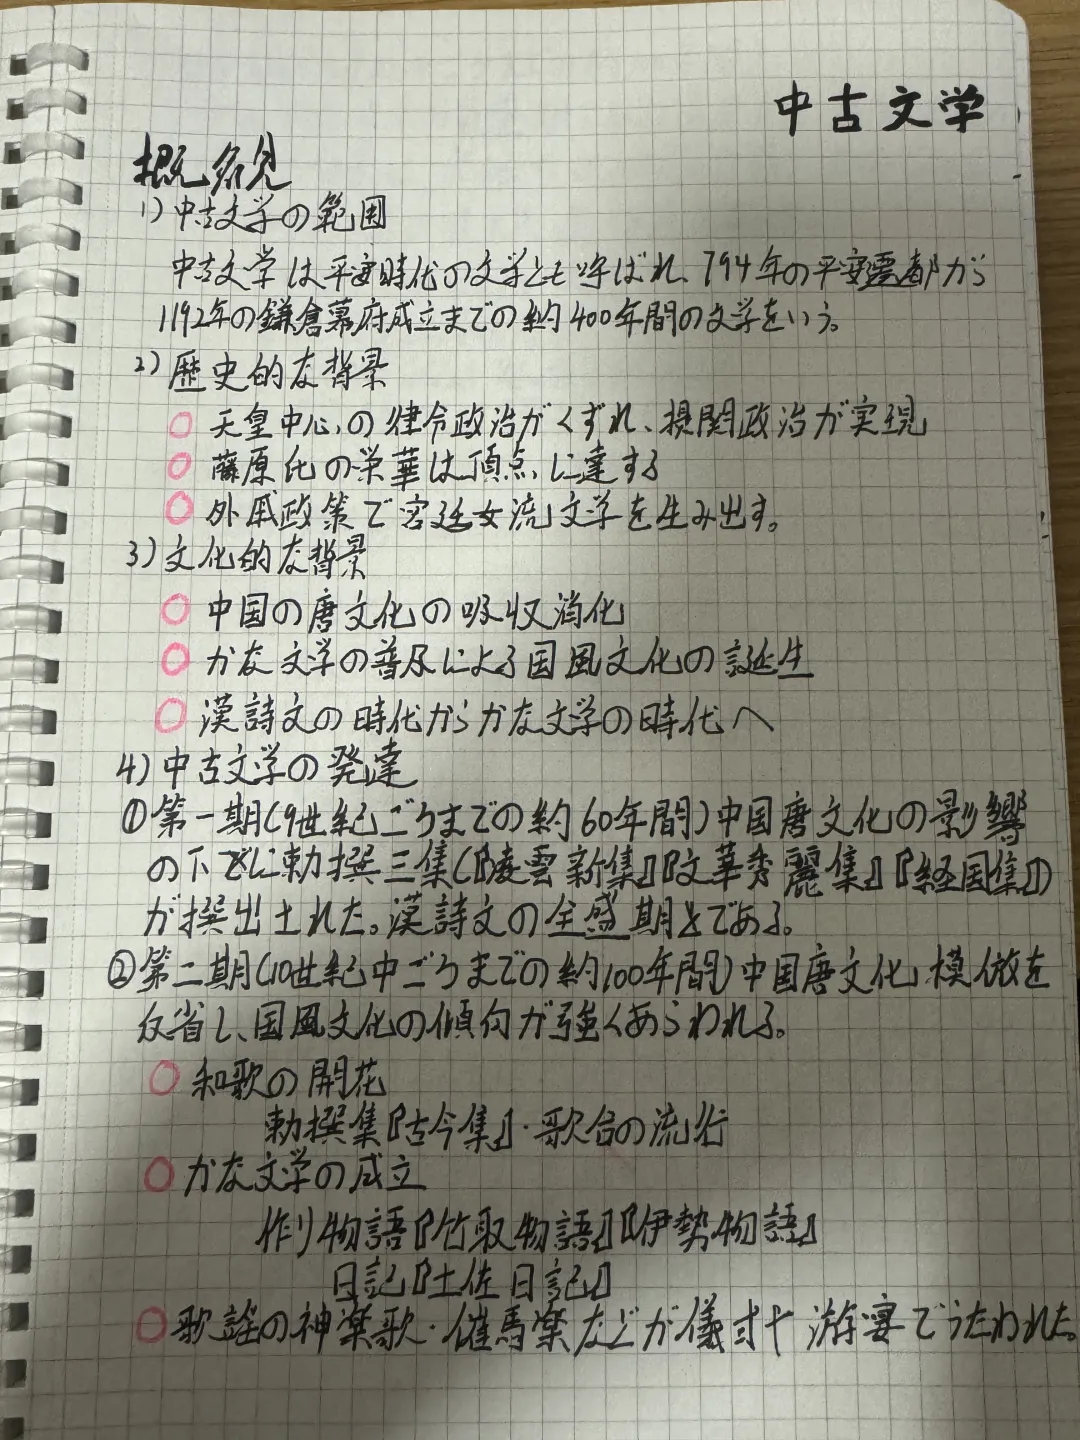 中古文学
概観
1) 中古文学の範囲
中古文学は平安時代の文学とも呼ばれ、794年の平安遷都から
1192年の鎌倉幕府成立までの約400年間の文学をいう。
2) 歴史的な背景
○ 天皇中心の律令政治がくずれ、摂関政治が実現
○ 藤原氏の栄華は頂点に達する
○ 外戚政策で宮廷女流文学を生み出す。
3) 文化的な背景
○ 中国の唐文化の吸収消化
○ かな文学の普及による国風文化の誕生
○ 漢詩文の時代からかな文学の時代へ
4) 中古文学の発達
① 第一期(9世紀ごろまでの約60年間)中国唐文化の影響
の下に勅撰三集(『凌雲新集』『文華秀麗集』『経国集』)
が撰出された。漢詩文の全盛期とである。
② 第二期(10世紀中ごろまでの約100年間)中国唐文化模倣を
反省し、国風文化の傾向が強くあらわれる。
○ 和歌の開花
勅撰集『古今集』・歌合の流行
○ かな文学の成立
作り物語『竹取物語』『伊勢物語』
日記『土佐日記』
○ 歌謡の神楽歌・催馬楽などが儀式や游宴でうたわれた。